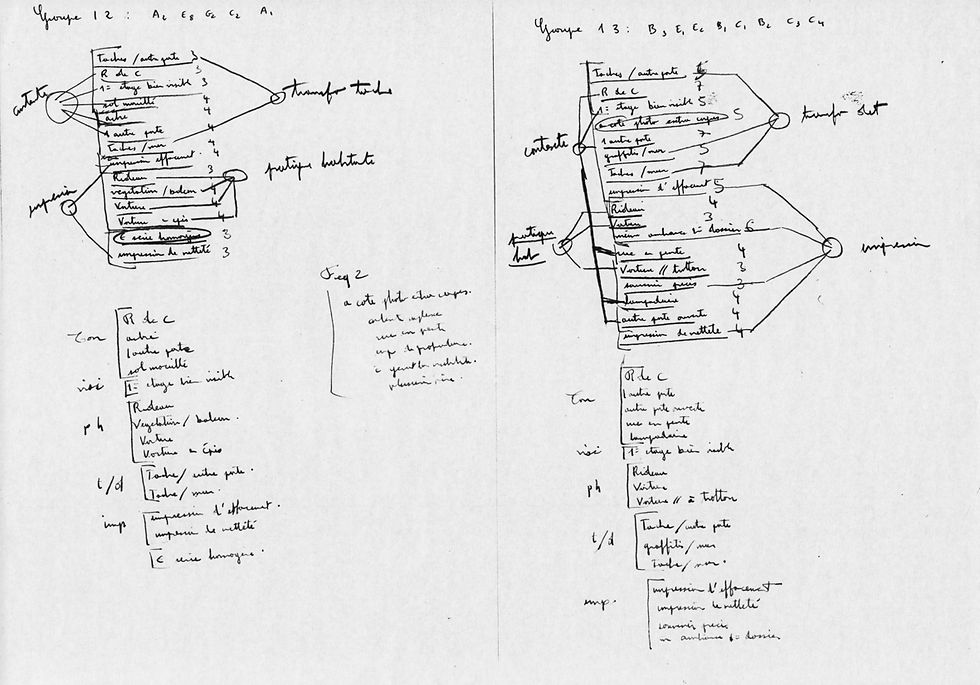 Groupe 12 : A2 E3 G2 C2 A1
Taches / autre porte 3
R de C 3
1er étage bien visible 3
sol mouillé 4
arbre 4
1 autre porte
Taches / mur 4
impression effacement 4
Rideau 3
vegetation / balcon 4
Voiture 4
Voiture en épis 4
∈ série homogène 3
impression de netteté 3
contexte
impression
transfo taches
pratique habitante
Con
R de C
arbre
1 autre porte
sol mouillé
visi
1er étage bien visible
ph
Rideau
Vegetation / balcon.
Voiture
Voiture en épis
t/d
Tache / autre porte.
Tache / mur.
imp
impression d'effacement.
impression de netteté
∈ série homogène.
Freq 2
a coté photo extra corpus.
rue en pente
Groupe 13 : B3 E1 E2 B1 C1 B2 C3 C4
Taches / autre porte
R de C 7
1er étage bien visible 5
a coté photo extra corpus 5
1 autre porte 7
graffitis / mur 5
Taches / mur 7
impression d'effacement 5
Rideau 4
Voiture 3
même ambiance dossier 6
rue en pente 4
Voiture // trottoir 3
souvenir precis 3
lampadaire 4
autre porte ouverte 4
impression de netteté 4
contexte
pratique hab
transfo
impression
Con
R de C
1 autre porte
autre porte ouverte
rue en pente
Lampadaire
visi
1er étage bien visible
ph
Rideau
Voiture
Voiture // à trottoir
t/d
Tache / autre porte
graffitis / mur
Tache / mur.
imp.
impression d'effacement
impression de netteté
souvenir precis
m ambiance dossier